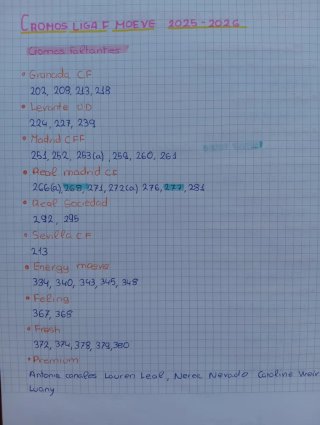 CROMOS LIGA F MOEVE 2025-2026
Cromos faltantes
• Granada C.F
202, 209, 213, 218
• Levante U.D
224, 227, 239
• Madrid CFF
251, 252, 253(a), 256, 260, 261
• Real madrid CF
266(a), 268, 271, 272(a) 276, 277, 281
• Real Sociedad
292, 295
• Sevilla C.F
213
• Energy moeve
334, 340, 343, 345, 348
• Feling
367, 368
• Fresh
372, 374, 378, 379, 380
• Premium
Antonia canales Lauren Leal, Nerea Nevado Caroline Weir
Luany